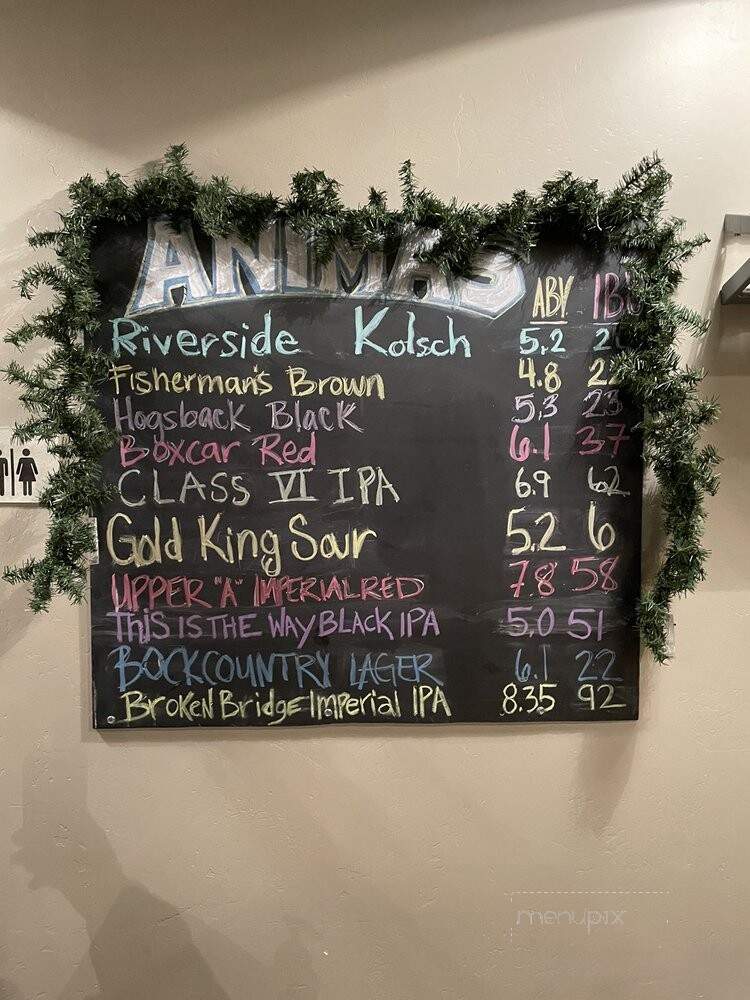 ANIMAS
ABV IBU
Riverside Kolsch 5.2
Fisherman's Brown 4.8 22
Hogsback Black 5.3 23
Boxcar Red 6.1 37
CLASS VI IPA 6.9 62
Gold King Sour 5.2 6
UPPER "A" IMPERIAL RED 7.8 58
THIS IS THE WAY BLACK IPA 5.0 51
BOCKCOUNTRY LAGER 6.1 22
Broken Bridge Imperial IPA 8.35 92
menupix